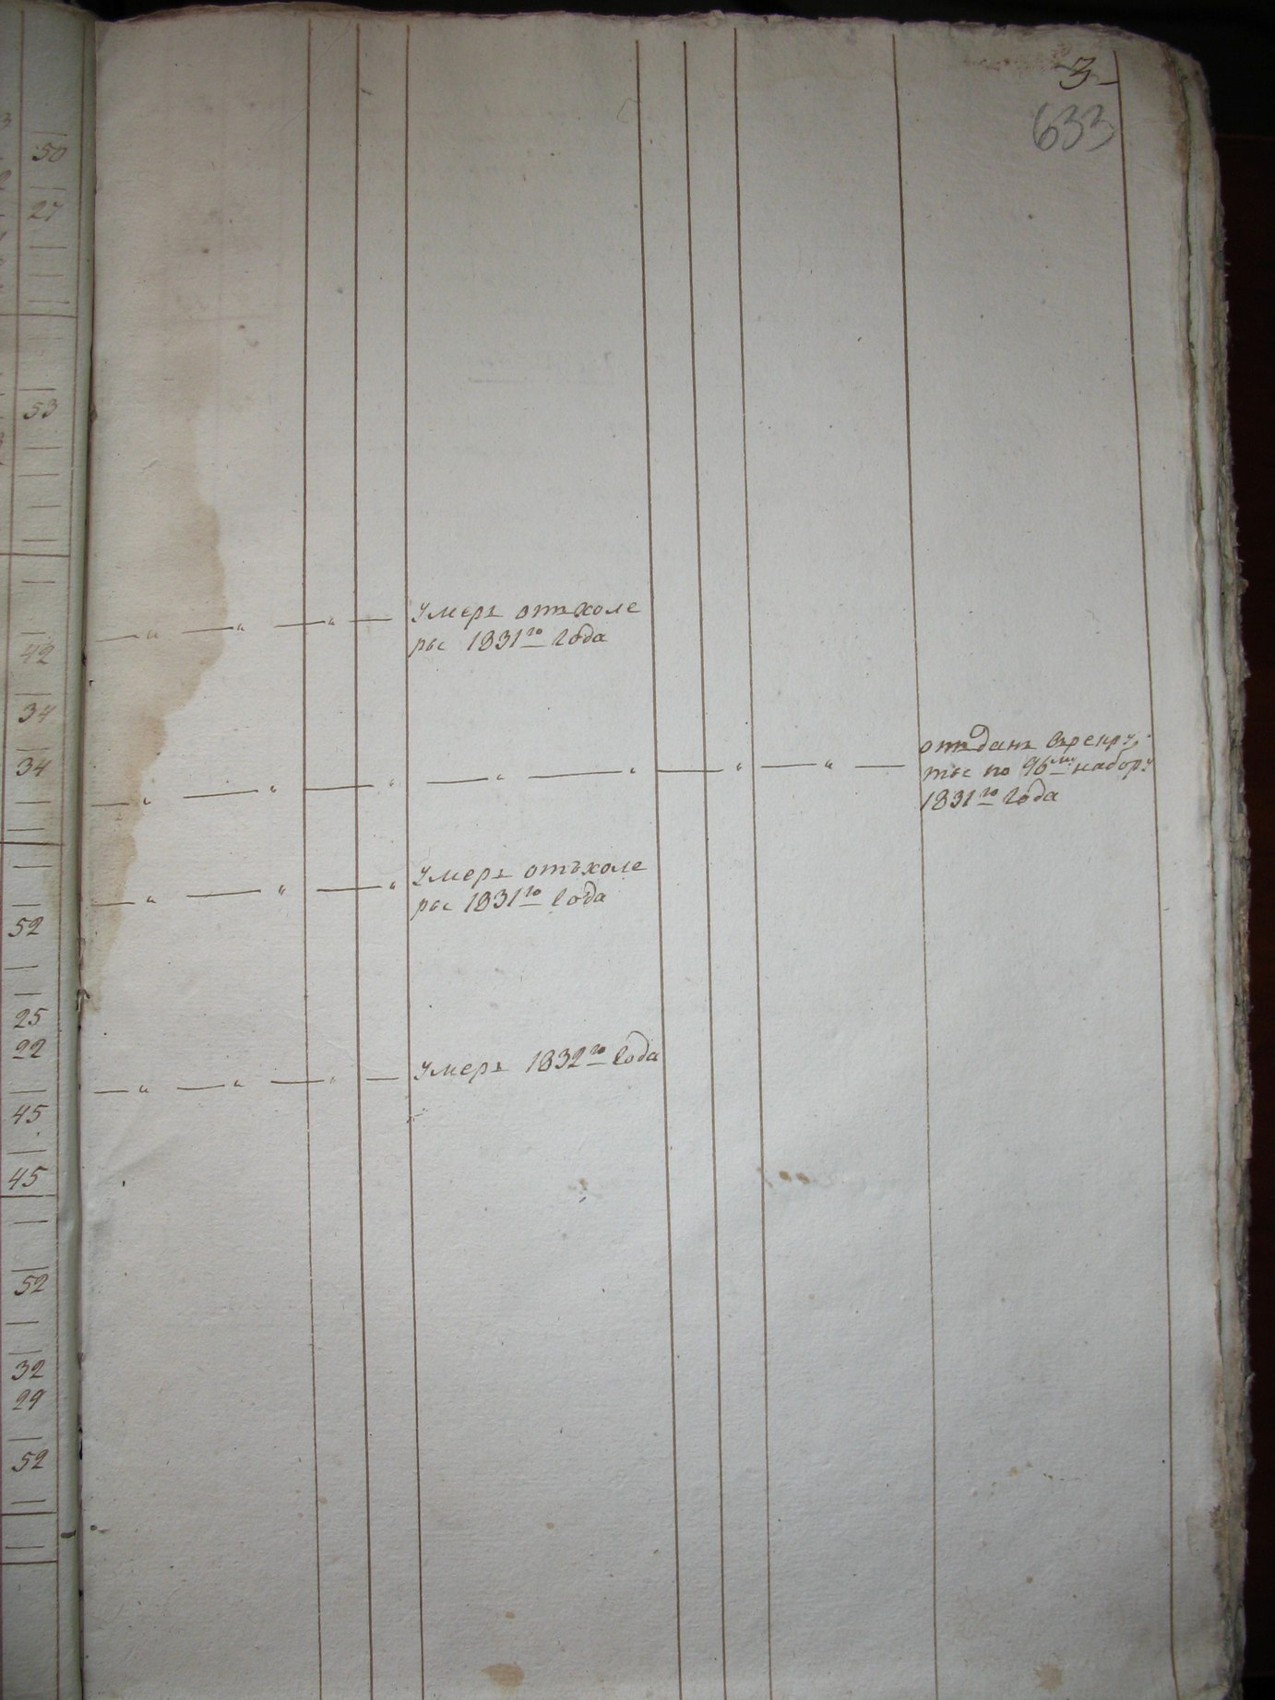 3
633
50
27
53
умеръ отъ холе
ры 1831го года
42
34
отъданъ врекру,
ты по 96му набору
1831го года
34
умеръ отъ холе
ры 1831го года
52
25
22
умеръ 1832го года
45
45
52
32
29
52